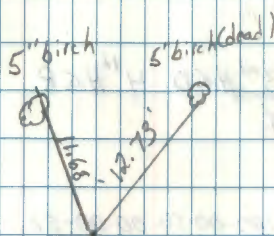 5" birch
5" birch (dead)
11.68'
12.73'